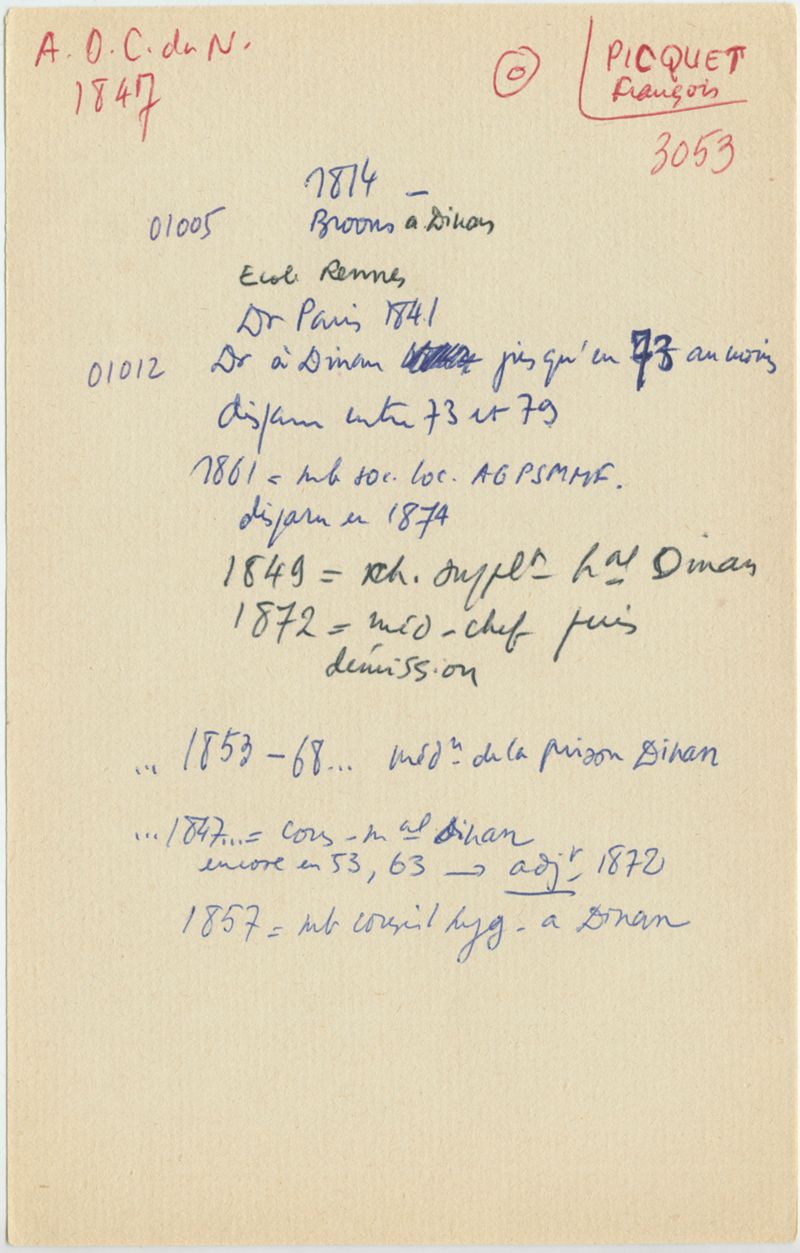 A. D. C. du N.
1847
O
PICQUET
François
3053
1814 -
01005 Broons a Dinan
Ecole Rennes
Dr Paris 1841
01012 Dr à Dinan jusqu'en 73 au moins
disparu entre 73 et 79
1861 = mb soc. loc. AGPSMMF.
disparu en 1874
1849 = ch. supplt hal Dinan
1872 = méd-chef puis
démission
... 1853-68... médn de la prison Dinan
...1847...= cons-mal Dinan
encore en 53, 63 → adjt 1872
1857 = mb conseil hyg. a Dinan